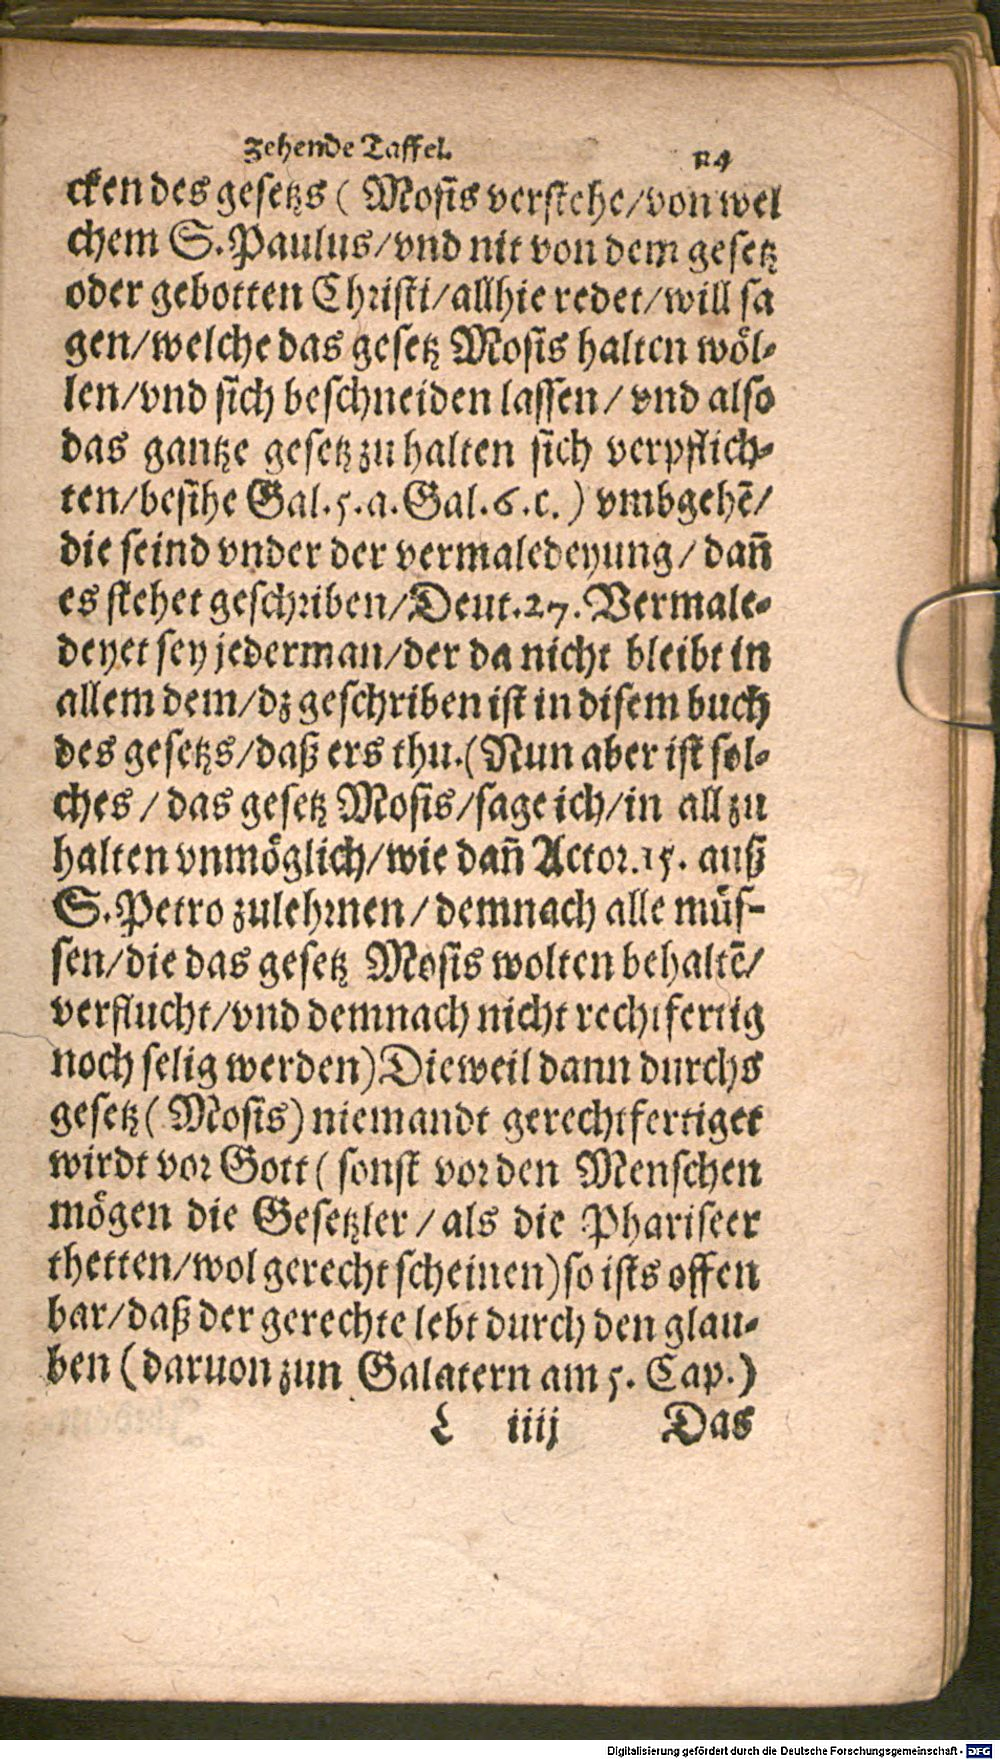 Zehende Taffel. 124
cken des gesetzs ( Mosis verstehe/von wel
chem S. Paulus/vnd nit von dem gesetz
oder gebotten Christi/allhie redet/will sa
gen/welche das gesetz Mosis halten wöl-
len/vnd sich beschneiden lassen/ vnd also
das gantze gesetz zu halten sich verpflich-
ten/besihe Gal. 5. a. Gal. 6. c.) vmbgehẽ/
die seind vnder der vermaledeyung/ dañ
es stehet geschriben/Deut. 27. Vermale-
deyet sey jederman/der da nicht bleibt in
allem dem/dz geschriben ist in disem buch
des gesetzs/daß ers thu. (Nun aber ist sol-
ches / das gesetz Mosis/sage ich/in all zu
halten vnmöglich/wie dañ Actor. 15. auß
S. Petro zulehrnen/ demnach alle müs-
sen/die das gesetz Mosis wolten behaltẽ/
verflucht/vnd demnach nicht rechtfertig
noch selig werden) Dieweil dann durchs
gesetz ( Mosis) niemandt gerechtfertiget
wirdt vor Gott ( sonst vor den Menschen
mögen die Gesetzler / als die Phariseer
thetten/wol gerecht scheinen) so ists offen
bar/daß der gerechte lebt durch den glau-
ben (daruon zun Galatern am 5. Cap.)
L iiij Das
Digitalisierung gefördert durch die Deutsche Forschungsgemeinschaft - DFG